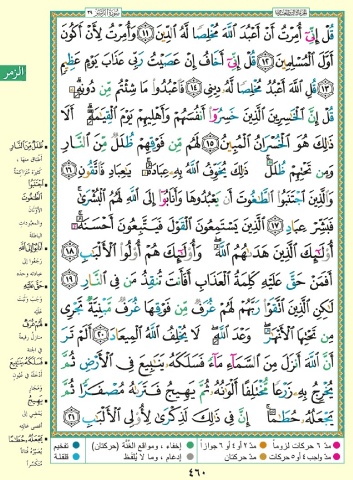 سورة الزمر ٣٩
الزمر
قُلْ إِنِّىٓ أُمِرْتُ أَنْ أَعْبُدَ ٱللَّهَ مُخْلِصًا لَّهُ ٱلدِّينَ ﴿١١﴾ وَأُمِرْتُ لِأَنْ أَكُونَ
أَوَّلَ ٱلْمُسْلِمِينَ ﴿١٢﴾ قُلْ إِنِّىٓ أَخَافُ إِنْ عَصَيْتُ رَبِّى عَذَابَ يَوْمٍ عَظِيمٍ
﴿١٣﴾ قُلِ ٱللَّهَ أَعْبُدُ مُخْلِصًا لَّهُۥ دِينِى ﴿١٤﴾ فَٱعْبُدُوا۟ مَا شِئْتُم مِّن دُونِهِۦ ۗ
قُلْ إِنَّ ٱلْخَـٰسِرِينَ ٱلَّذِينَ خَسِرُوٓا۟ أَنفُسَهُمْ وَأَهْلِيهِمْ يَوْمَ ٱلْقِيَـٰمَةِ ۗ أَلَا
ذَٰلِكَ هُوَ ٱلْخُسْرَانُ ٱلْمُبِينُ ﴿١٥﴾ لَهُم مِّن فَوْقِهِمْ ظُلَلٌ مِّنَ ٱلنَّارِ
وَمِن تَحْتِهِمْ ظُلَلٌ ۚ ذَٰلِكَ يُخَوِّفُ ٱللَّهُ بِهِۦ عِبَادَهُۥ ۚ يَـٰعِبَادِ فَٱتَّقُونِ ﴿١٦﴾
وَٱلَّذِينَ ٱجْتَنَبُوا۟ ٱلطَّـٰغُوتَ أَن يَعْبُدُوهَا وَأَنَابُوٓا۟ إِلَى ٱللَّهِ لَهُمُ ٱلْبُشْرَىٰ ۚ
فَبَشِّرْ عِبَادِ ﴿١٧﴾ ٱلَّذِينَ يَسْتَمِعُونَ ٱلْقَوْلَ فَيَتَّبِعُونَ أَحْسَنَهُۥٓ ۚ
أُو۟لَـٰٓئِكَ ٱلَّذِينَ هَدَىٰهُمُ ٱللَّهُ ۖ وَأُو۟لَـٰٓئِكَ هُمْ أُو۟لُوا۟ ٱلْأَلْبَـٰبِ ﴿١٨﴾
أَفَمَنْ حَقَّ عَلَيْهِ كَلِمَةُ ٱلْعَذَابِ أَفَأَنتَ تُنقِذُ مَن فِى ٱلنَّارِ ﴿١٩﴾
لَـٰكِنِ ٱلَّذِينَ ٱتَّقَوْا۟ رَبَّهُمْ لَهُمْ غُرَفٌ مِّن فَوْقِهَا غُرَفٌ مَّبْنِيَّةٌ تَجْرِى
مِن تَحْتِهَا ٱلْأَنْهَـٰرُ ۖ وَعْدَ ٱللَّهِ ۖ لَا يُخْلِفُ ٱللَّهُ ٱلْمِيعَادَ ﴿٢٠﴾ أَلَمْ تَرَ
أَنَّ ٱللَّهَ أَنزَلَ مِنَ ٱلسَّمَآءِ مَآءً فَسَلَكَهُۥ يَنَـٰبِيعَ فِى ٱلْأَرْضِ ثُمَّ
يُخْرِجُ بِهِۦ زَرْعًا مُّخْتَلِفًا أَلْوَٰنُهُۥ ثُمَّ يَهِيجُ فَتَرَىٰهُ مُصْفَرًّا ثُمَّ
يَجْعَلُهُۥ حُطَـٰمًا ۚ إِنَّ فِى ذَٰلِكَ لَذِكْرَىٰ لِأُو۟لِى ٱلْأَلْبَـٰبِ ﴿٢١﴾
ظُلَلٌ مِّنَ النَّارِ
اجْتَنَبُوا
الطَّاغُوتَ
الأوثان
حَقَّ عَلَيْهِ
لَهُمْ غُرَفٌ
فَسَلَكَهُ يَنَابِيعَ
يَهِيجُ
يَجْعَلُهُ حُطَامًا
مدّ ٦ حركات لزوماً
مدّ ٢ أو ٤ أو ٦ جوازاً
إخفاء، ومواقع الغُنَّة (حركتان)
تفخيم
مدّ واجب ٤ أو ٥ حركات
مدّ حركتان
إدغام، وما لا يُلفَظ
قلقلة
٤٦٠